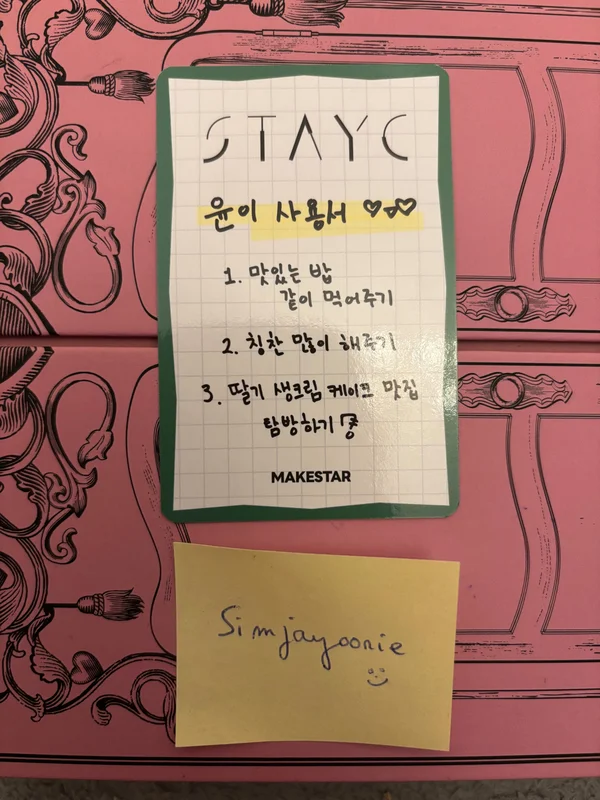 STAYC
윤이 사용서 ♡♡♡
1. 맛있는 밥
같이 먹어주기
2. 칭찬 많이 해주기
3. 딸기 생크림 케이크 맛집
탐방하기
MAKESTAR
Simjayoonie